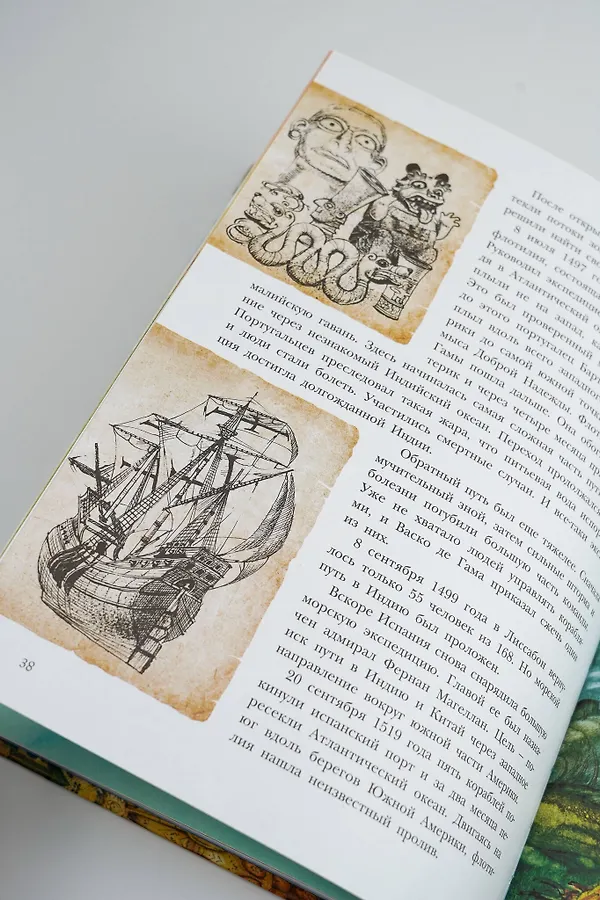 После откры
текли потоки зо
решили найти св
8 июля 1497 го
флотилия, состо
Руководил экспеди
да в Атлантический о
плыли не на запад, ка
Это был проверенный п
до этого португалец Бар
плыл вдоль всего западн
рики до самой южной точк
мыса Доброй Надежды. Фло
Гамы пошла дальше. Они обо
терик и через четыре месяца при
малийскую гавань. Здесь начиналась самая сложная часть пути
ние через незнакомый Индийский океан. Переход продолжался
Португальцев преследовал такая жара, что питьевая вода испо
и люди стали болеть. Участились смертные случаи. И все-таки экс
ция достигла долгожданной Индии.
Обратный путь был еще тяжелее. Сначал
мучительный зной, затем сильные штормы и
болезни погубили большую часть команды.
Уже не хватало людей управлять корабля
ми, и Васко де Гама приказал сжечь один
из них.
8 сентября 1499 года в Лиссабон верну-
лось только 55 человек из 168. Но морской
путь в Индию был проложен.
Вскоре Испания снова снарядила большую
морскую экспедицию. Главой ее был назна-
чен адмирал Фернан Магеллан. Цель – по-
иск пути в Индию и Китай через западное
направление вокруг южной части Америки.
20 сентября 1519 года пять кораблей по-
кинули испанский порт и за два месяца пе-
ресекли Атлантический океан. Двигаясь на
юг вдоль берегов Южной Америки, флоти-
лия нашла неизвестный пролив.
38